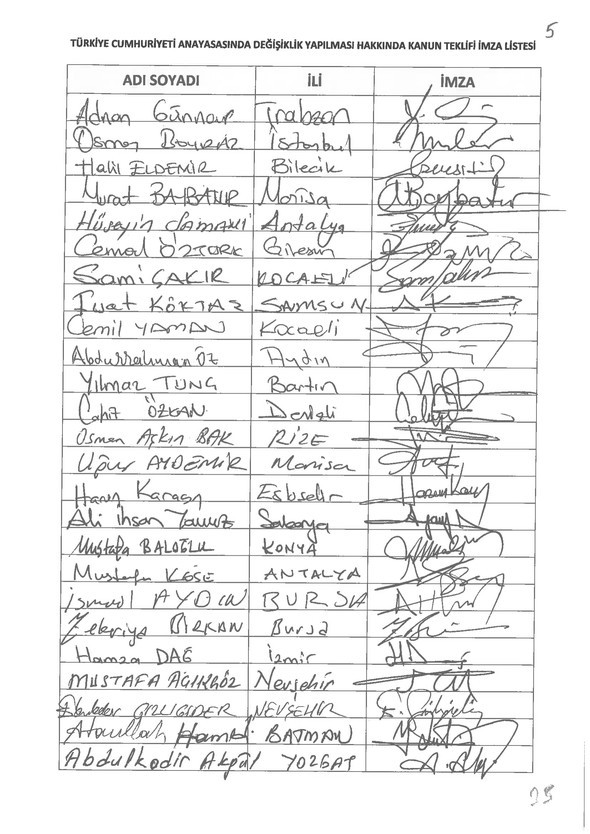 5
TÜRKİYE CUMHURİYETİ ANAYASASINDA DEĞİŞİKLİK YAPILMASI HAKKINDA KANUN TEKLİFİ İMZA LİSTESİ
ADI SOYADI İLİ İMZA
Adnan Günnar Trabzon
Osman Boyraz İstanbul
Halil ELDEMİR Bilecik
Murat BAYBATUR Manisa MBaybatur
Hüseyin Samani Antalya
Cemal ÖZTÜRK Giresun
Sami ÇAKIR KOCAELİ
Fuat KÖKTAŞ SAMSUN
Cemil YAMAN Kocaeli
Abdurrahman Öz Aydın
Yılmaz TUNÇ Bartın
Cahit ÖZKAN Denizli
Osman Aşkın BAK RİZE
Uğur AYDEMİR Manisa
Harun Karacan Eskişehir
Ali İhsan Yavuz Sakarya
Mustafa BALOĞLU KONYA
Mustafa KÖSE ANTALYA
İsmail AYDIN BURSA
Zekeriya BİRKAN Bursa
Hamza DAĞ İzmir
MUSTAFA AÇIKGÖZ Nevşehir
GİZLİGİDER NEVŞEHİR
Ataullah Hamidi BATMAN
Abdulkadir Akgül YOZGAT
25